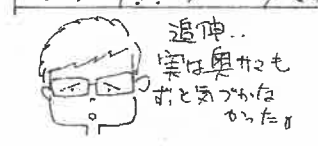 追伸..
実は奥サマも
ずっと気づかな
かった。